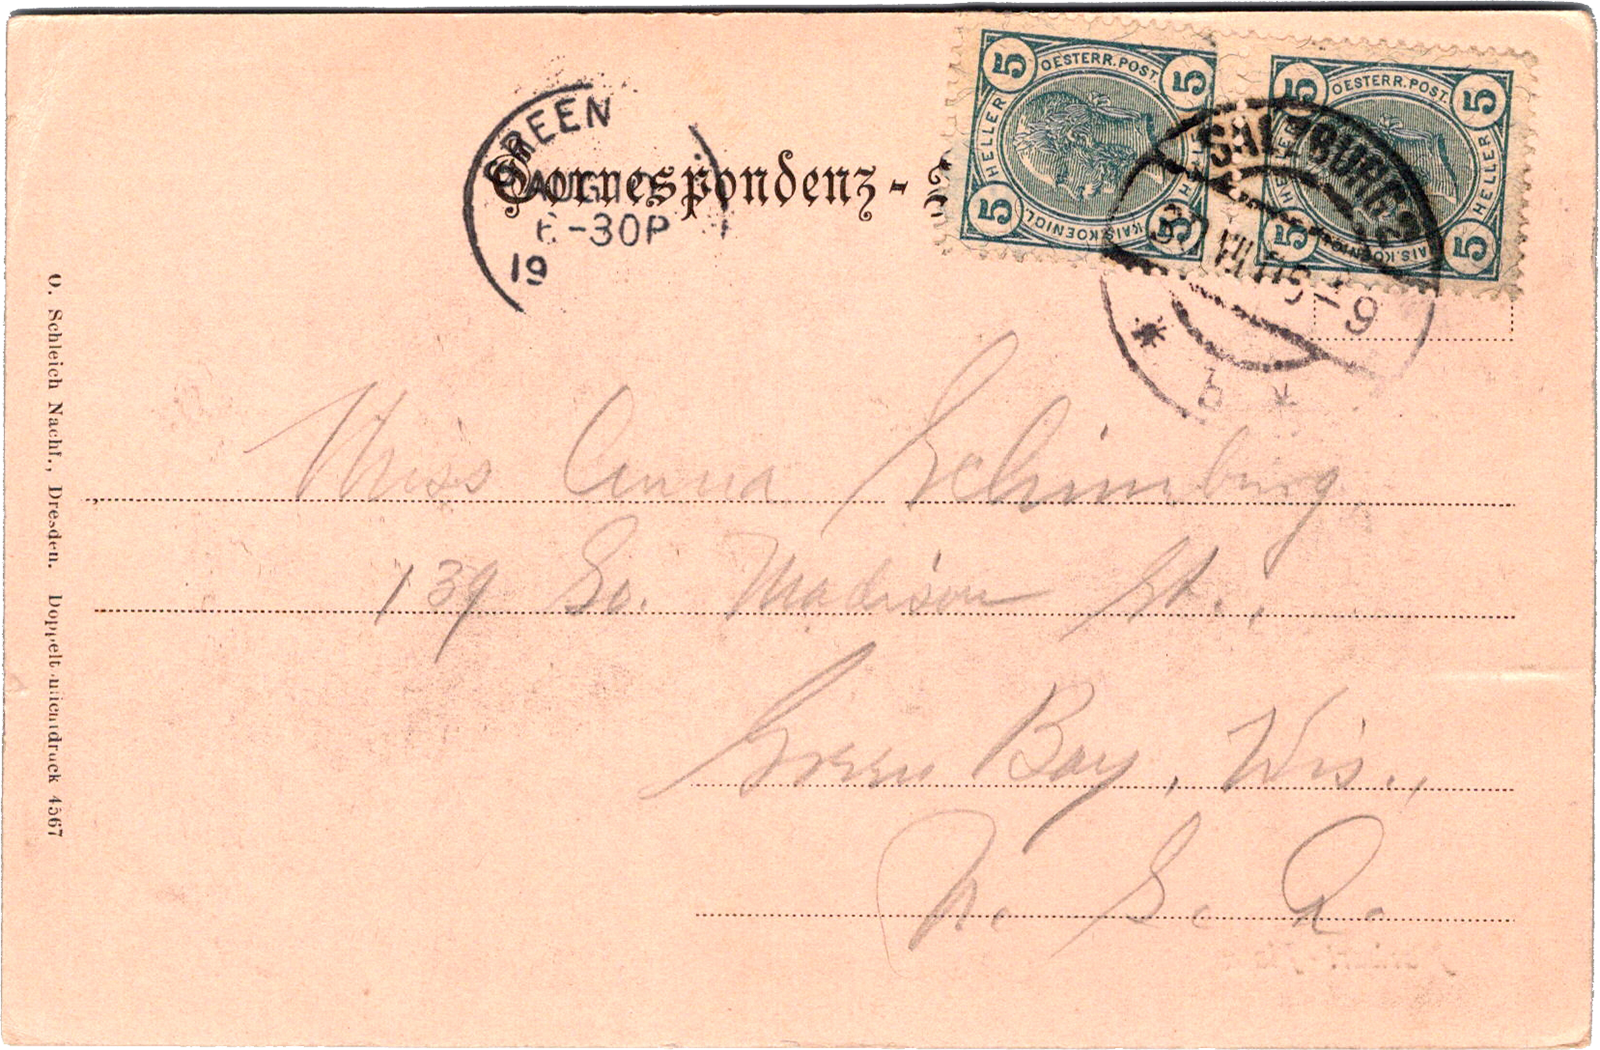 GREEN
AUG 12
6-30P
19
Correspondenz-
5 OESTERR. POST. 5
HELLER HELLER
5 KAIS. KOENIGL. 5
5 OESTERR. POST. 5
HELLER HELLER
5 KAIS. KOENIGL. 5
SALZBURG 2
30 VII 05-9
* b *
Miss Anna Schimburg
139 So. Madison St.,
Green Bay, Wis.,
U. S. A.
O. Schleich Nachf., Dresden. Doppeltonlichtdruck 4567